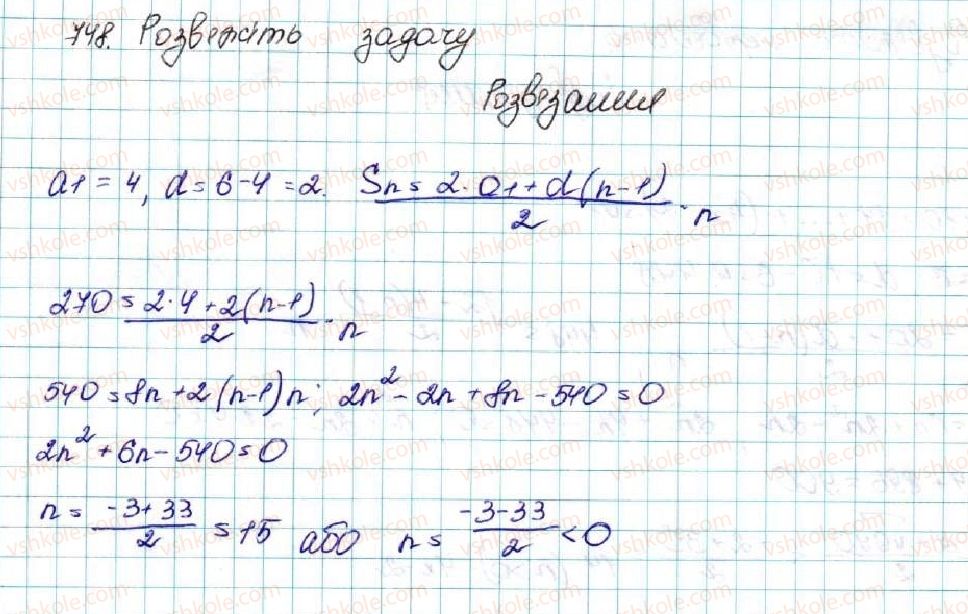 748. Розвежіть задачу
Розвезання
a1 = 4, d = 6-4 = 2. Sn = (2·a1 + d(n-1))/2 · n
270 = (2·4 + 2(n-1))/2 · n
540 = 8n + 2(n-1)n; 2n² - 2n + 8n - 540 = 0
2n² + 6n - 540 = 0
n = (-3+33)/2 = 15 або n = (-3-33)/2 < 0